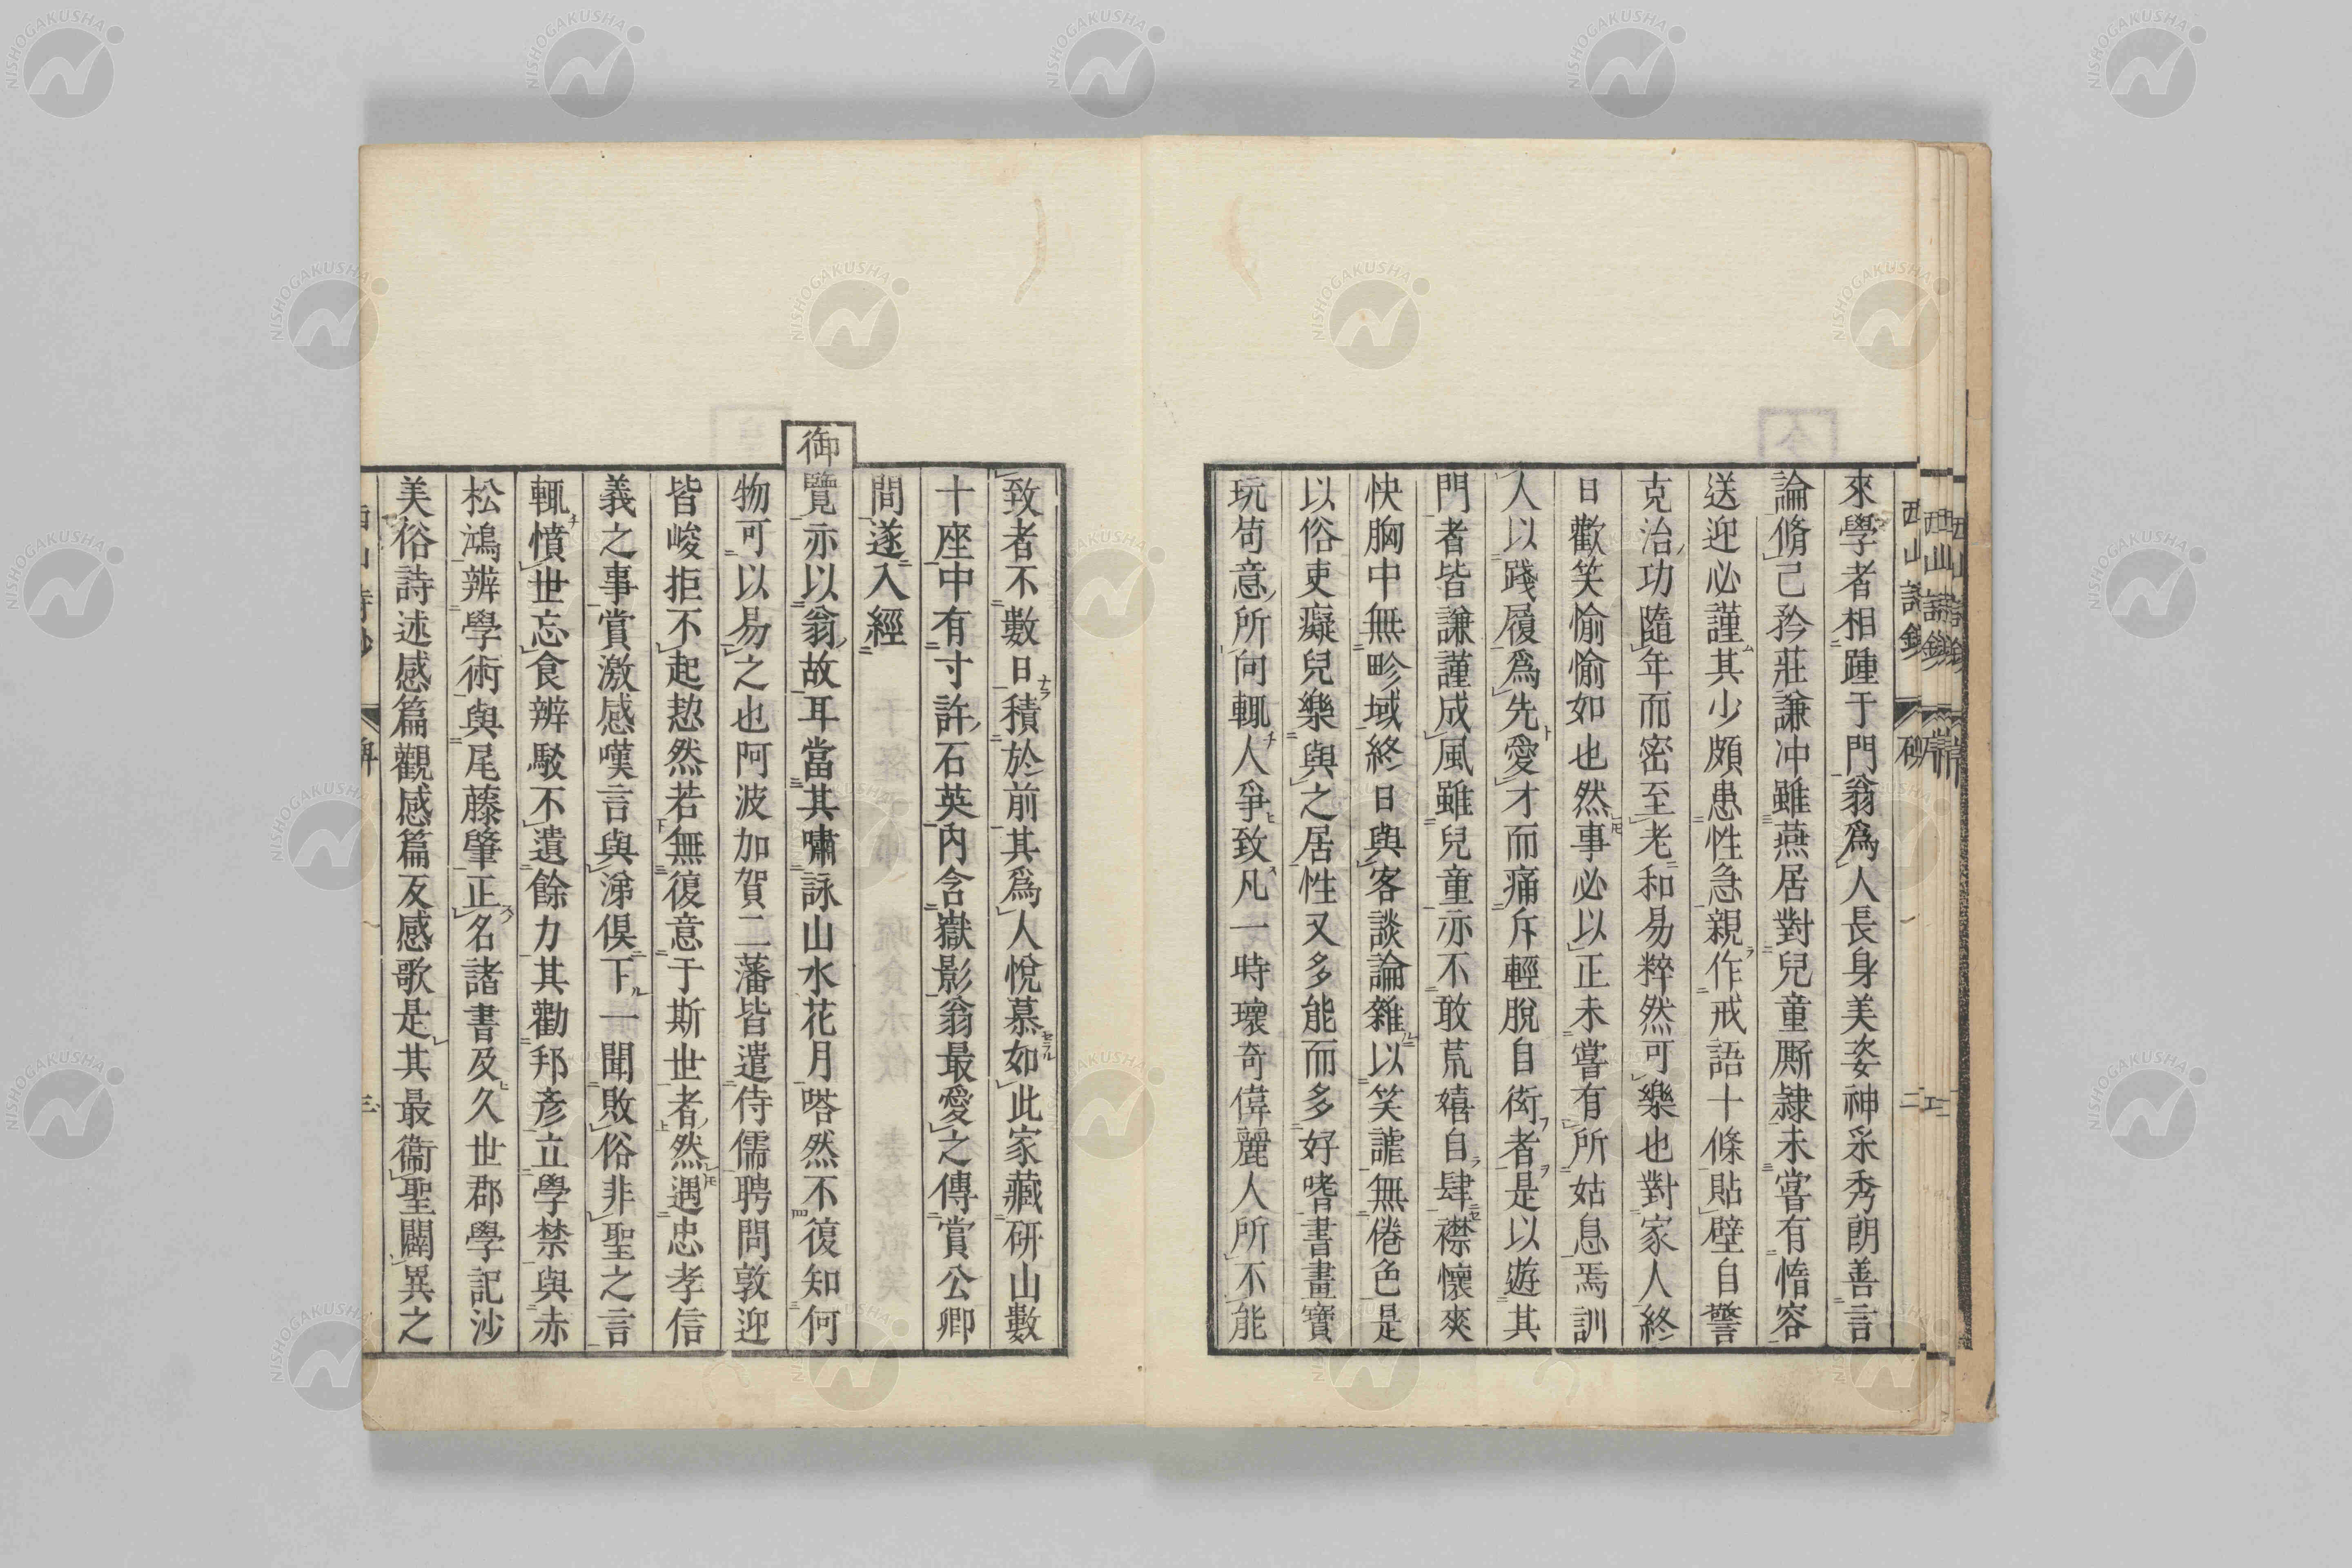 來學者相踵于門翁爲人長身美姿神采秀朗善言
論脩己矜莊謙冲雖燕居對兒童厮隷未嘗有惰容
送迎必謹其少頗患性急親作戒語十條貼壁自警
克治功隨年而密至老和易粹然可樂也對家人終
日歡笑愉愉如也然事必以正未嘗有所姑息焉訓
人以踐履爲先愛才而痛斥輕脫自衒者是以遊其
門者皆謙謹成風雖兒童亦不敢荒嬉自肆襟懷爽
快胸中無畛域終日與客談論雜以笑謔無倦色是
以俗吏癡兒樂與之居性又多能而多好嗜書畫寶
玩苟意所向輒人爭致凡一時瓌奇偉麗人所不能
致者不數日積於前其爲人悅慕如此家藏研山數
十座中有寸許石英內含嶽影翁最愛之傳賞公卿
間遂入經
御覽亦以翁故耳當其嘯詠山水花月嗒然不復知何
物可以易之也阿波加賀二藩皆遣侍儒聘問敦迎
皆峻拒不起恝然若無復意于斯世者然遇忠孝信
義之事賞激感嘆言與涕俱下一聞敗俗非聖之言
輒憤世忘食辨駁不遺餘力其勸邦彥立學禁與赤
松鴻辨學術與尾藤肇正名諸書及久世郡學記沙
美俗詩述感篇觀感篇及感歌是其最衞聖闢異之
NISHOGAKUSHA